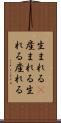 生まれる
産まれる生
れる産れる